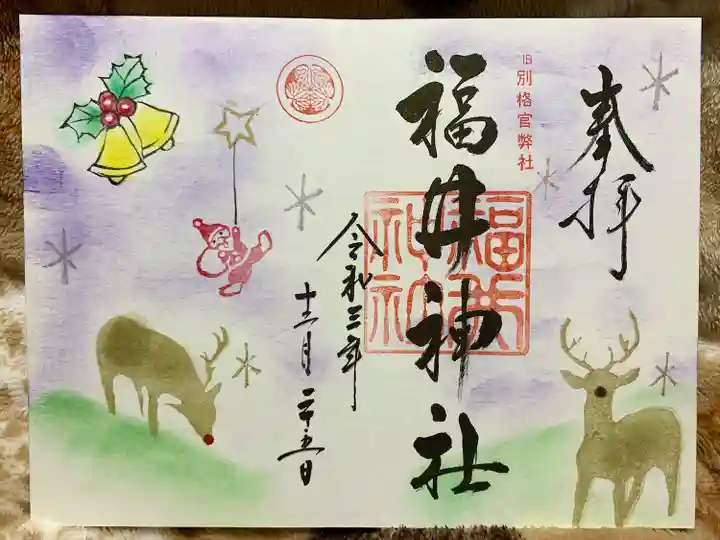 奉拝
旧別格官幣社
福井神社
福井神社
令和三年
十二月二十五日